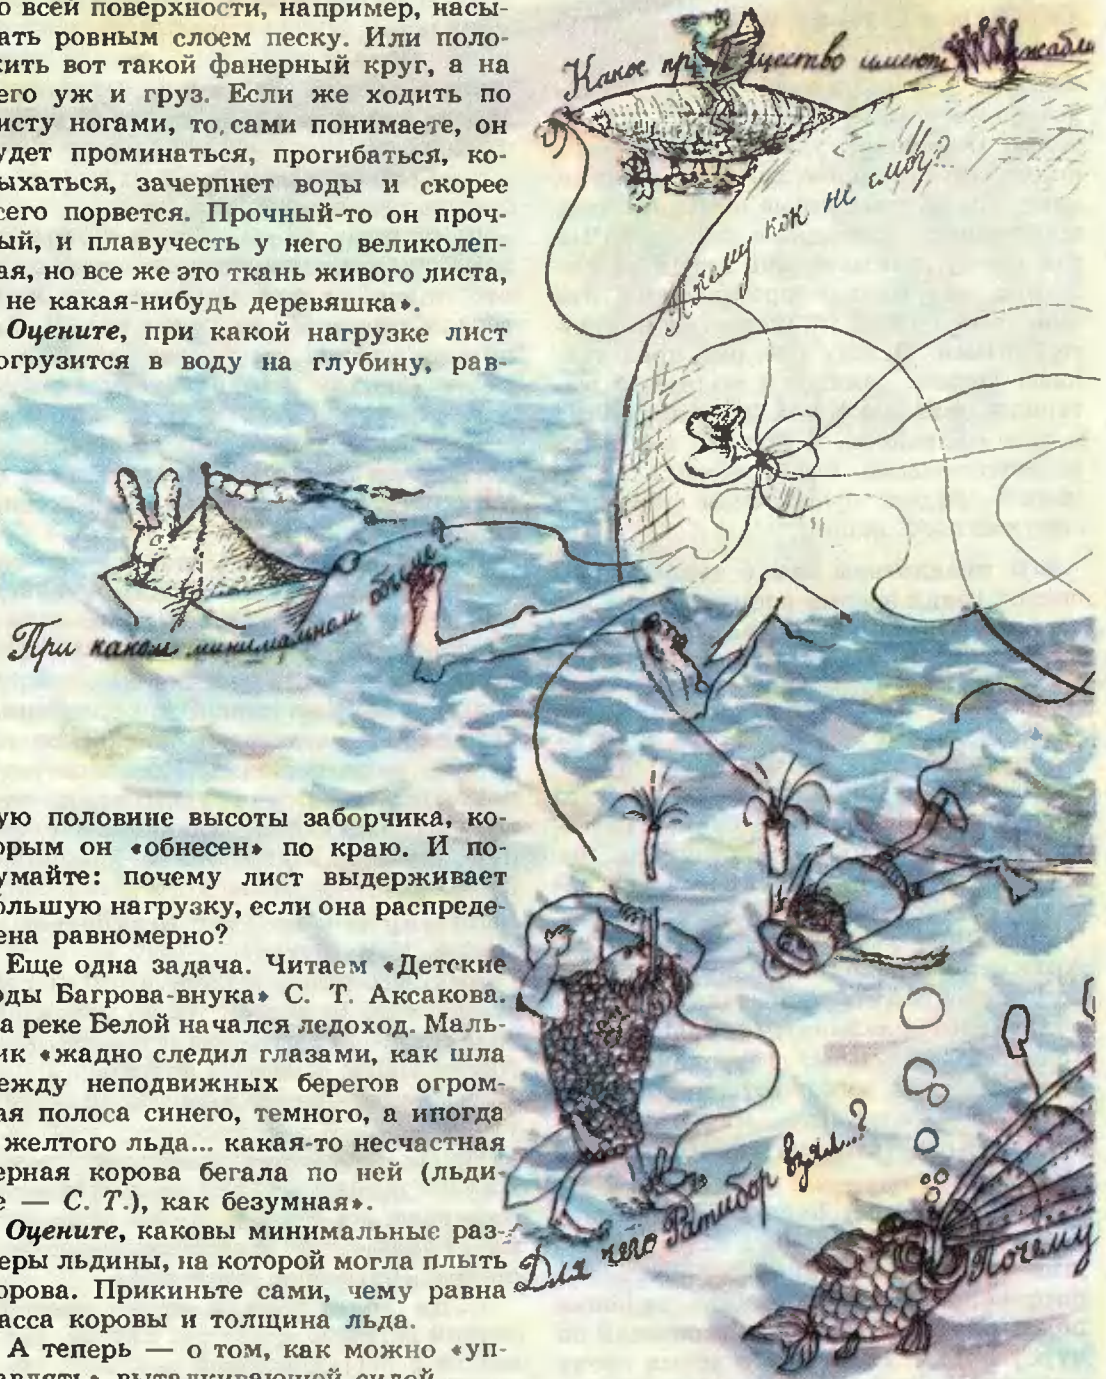 о всей поверхности, например, насы-
ать ровным слоем песку. Или поло-
жить вот такой фанерный круг, а на
его уж и груз. Если же ходить по
исту ногами, то, сами понимаете, он
удет проминаться, прогибаться, ко-
ыхаться, зачерпнет воды и скорее
сего порвется. Прочный-то он проч-
ый, и плавучесть у него великолеп-
ая, но все же это ткань живого листа,
не какая-нибудь деревяшка».
Оцените, при какой нагрузке лист
огрузится в воду на глубину, рав-
ую половине высоты заборчика, ко-
орым он «обнесен» по краю. И по-
умайте: почему лист выдерживает
ольшую нагрузку, если она распреде-
ена равномерно?
Еще одна задача. Читаем «Детские
оды Багрова-внука» С. Т. Аксакова.
а реке Белой начался ледоход. Маль-
ик «жадно следил глазами, как шла
ежду неподвижных берегов огром-
ая полоса синего, темного, а иногда
желтого льда... какая-то несчастная
ерная корова бегала по ней (льди-
е — С. Т.), как безумная».
Оцените, каковы минимальные раз-
еры льдины, на которой могла плыть
орова. Прикиньте сами, чему равна
асса коровы и толщина льда.
А теперь — о том, как можно «уп-
авлять» выталкивающей силой.
Какое имеют
Почему кок не смог?
При каком минимальном объеме
Для чего Ратибор взял...?
Почему